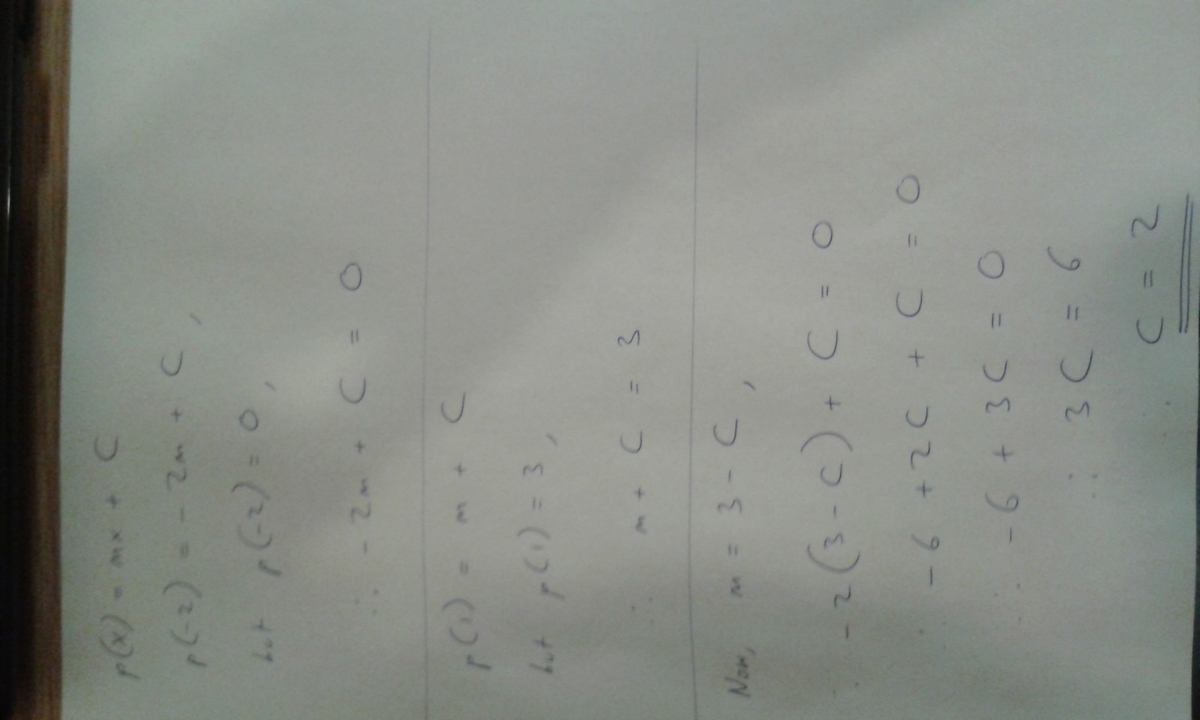 p(x) = mx + C
p(-2) = -2m + C,
but p(-2) = 0,
∴ -2m + C = 0
p(1) = m + C
but p(1) = 3,
∴ m + C = 3
Now, m = 3 - C,
∴ -2(3 - C) + C = 0
∴ -6 + 2C + C = 0
∴ -6 + 3C = 0
∴ 3C = 6
∴ C = 2